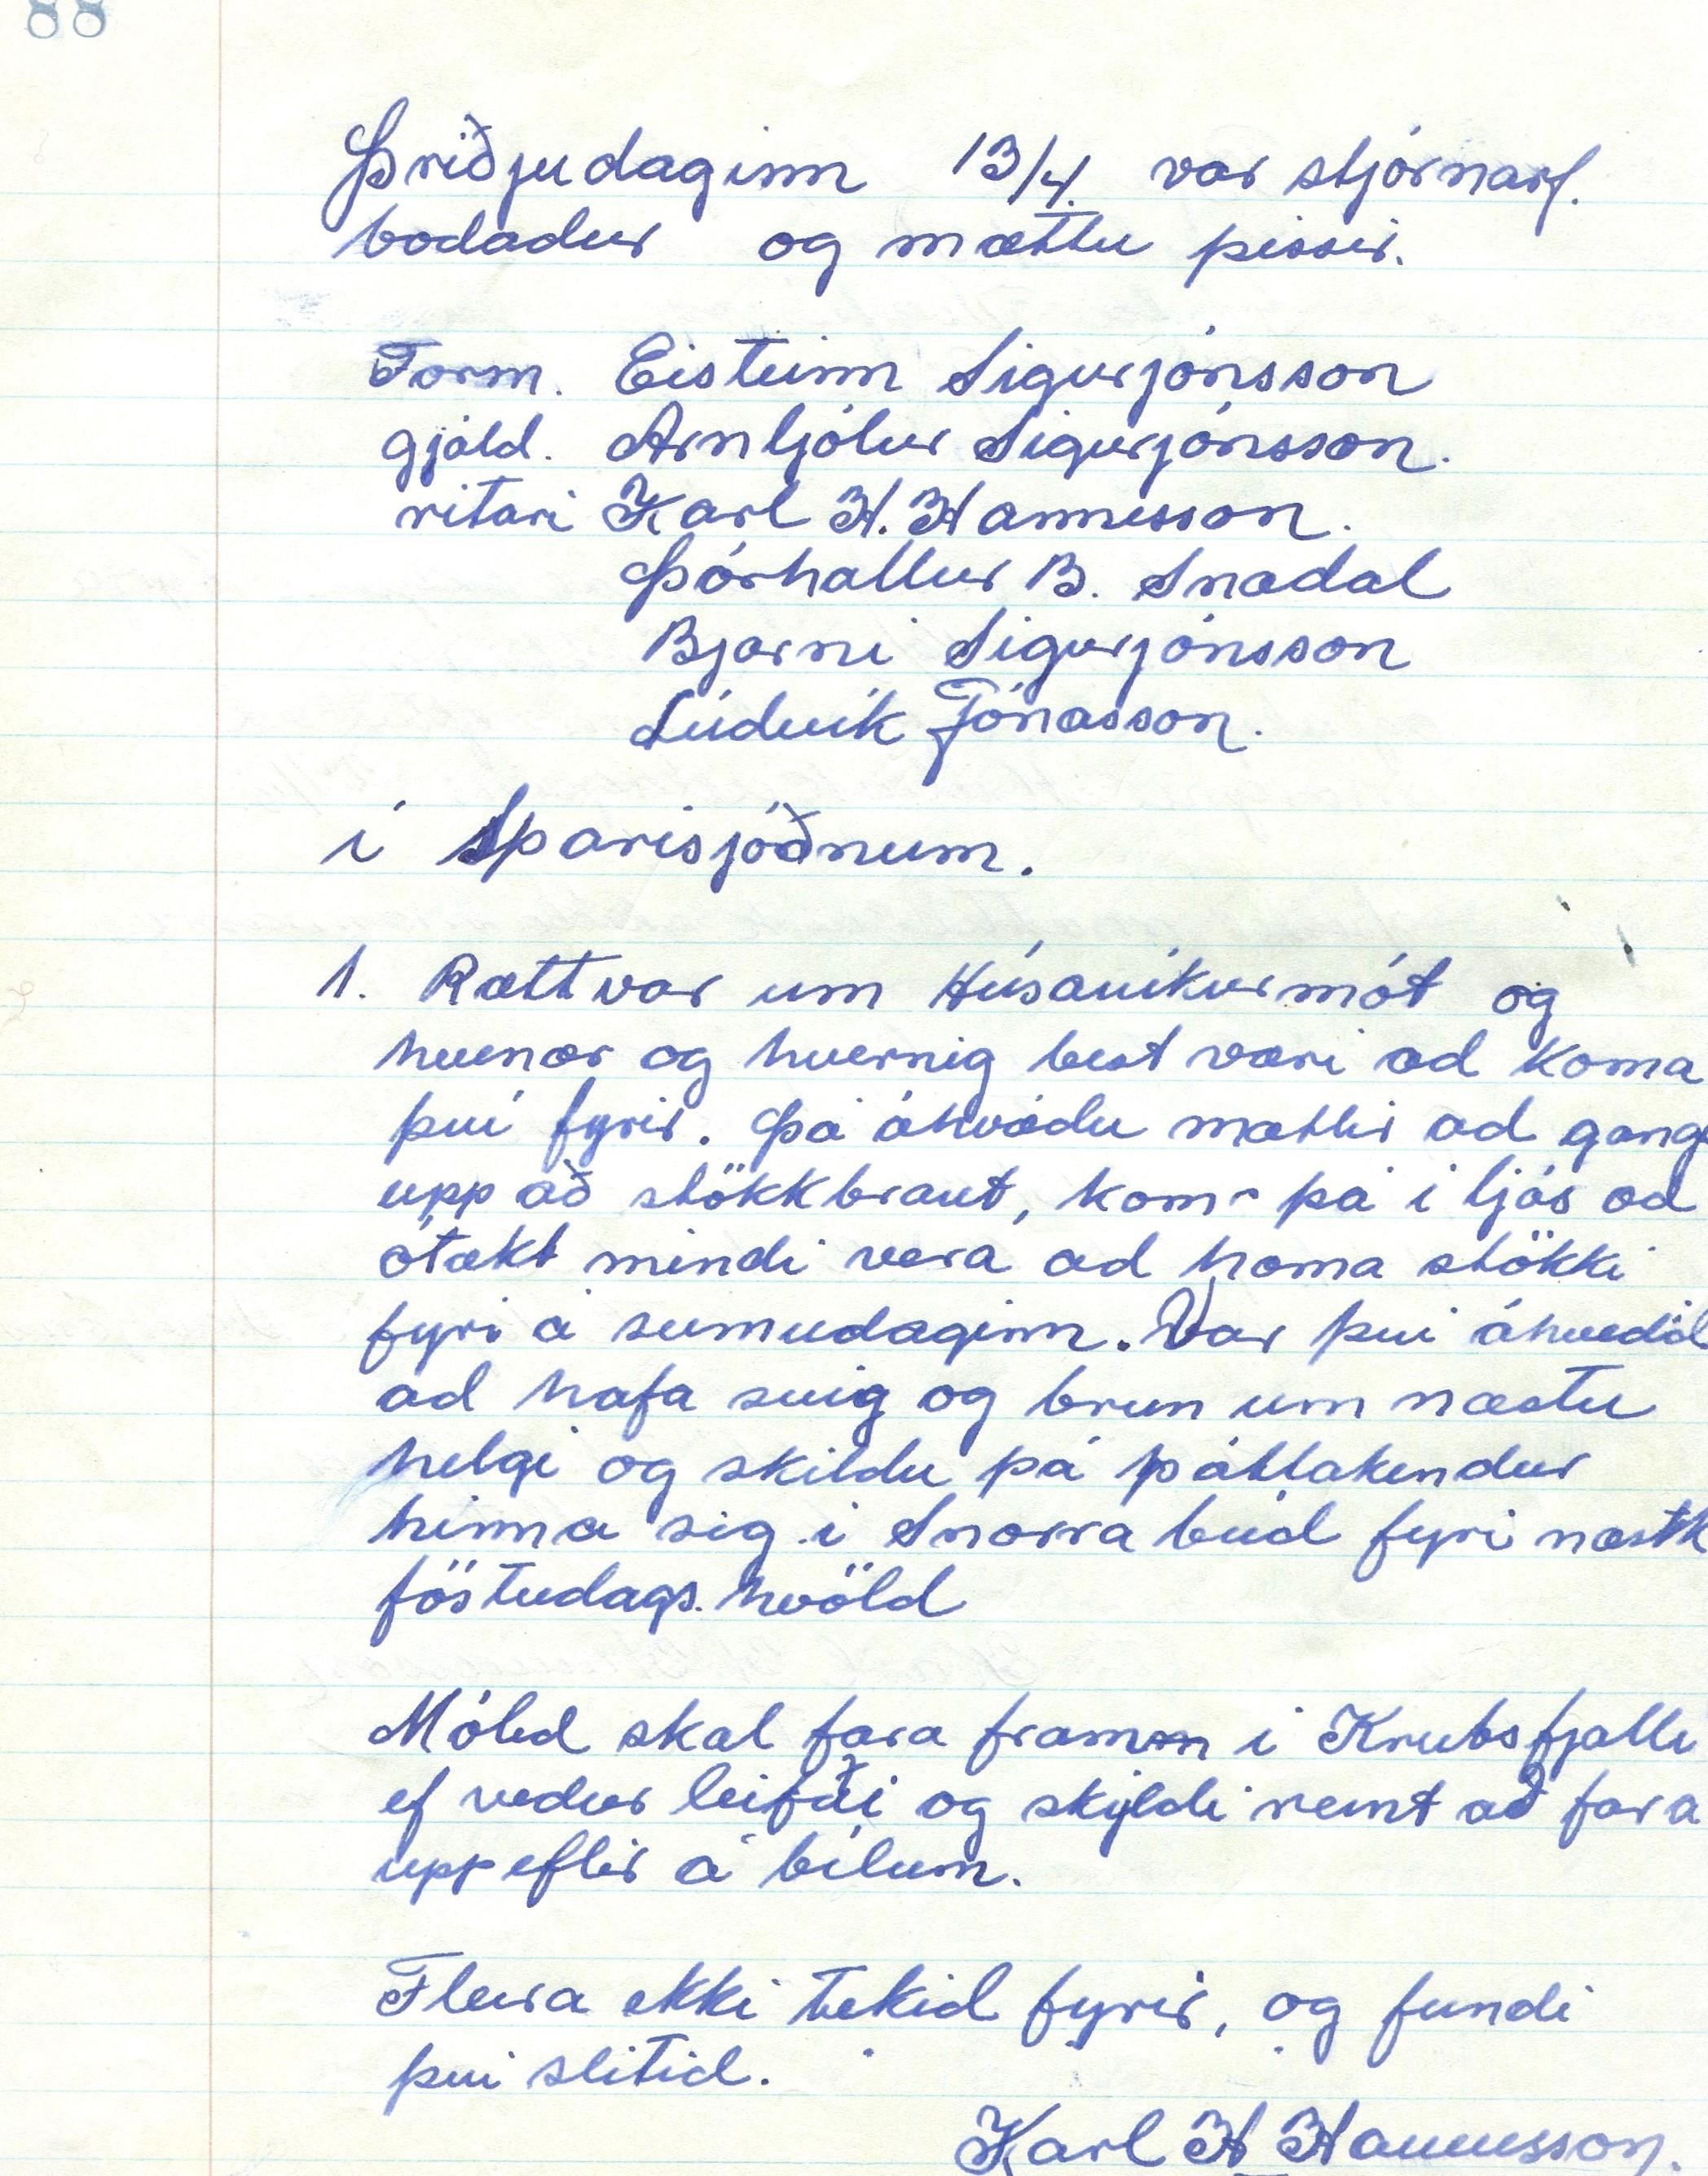 88
Þriðjudaginn 13/4. var stjórnarf.
bodadur og mættu þessir.
Form. Eisteinn Sigurjónsson
gjald. Arnljótur Sigurjónsson.
ritari Karl H. Hannesson.
Þórhallur B. Snædal
Bjarni Sigurjónsson
Lúdvík Jónasson.
í Sparisjóðnum.
1. Rætt var um Húsavíkurmót og
hvenær og hvernig best væri ad koma
því fyrir. Þá ákvádu mættir ad gang
upp að stökkbraut, kom þá í ljós ad
ótækt mindi vera ad koma stökki
fyri á sunnudaginn. Var því ákvedid
ad hafa svig og brun um næstu
helgi og skildu þá þátttakendur
kinna sig í Snorra búd fyri næstk
föstudags. kvöld
Mótid skal fara fram í Krubsfjalli
ef vedur leifði og skyldi reint að fara
upp eftir á bílum.
Fleira ekki tekid fyrir, og fundi
því slitid.
Karl H Hannesson.